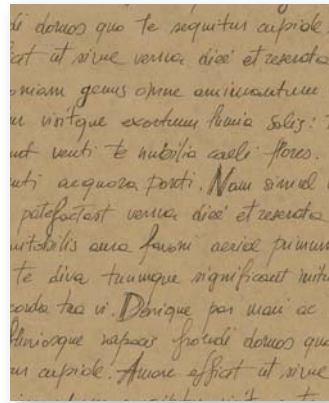 di domos quo te sequitur cupide.
ficat ut sirue verna diée et reserata
oniam genus omne animantum
ur visitque exortum lumia Solis:
unt venti te nubilia caeli flores.
nti aequora ponti. Nam simul
patefactast verna diéi et reserata
nitabilis aura favoni aeriae primum
te diva tuumque significant initu
corda tua vi. Dénique par mari ac
fluviosque rapacis frondi domos quo
ur cupide. Amore efficit ut sirue